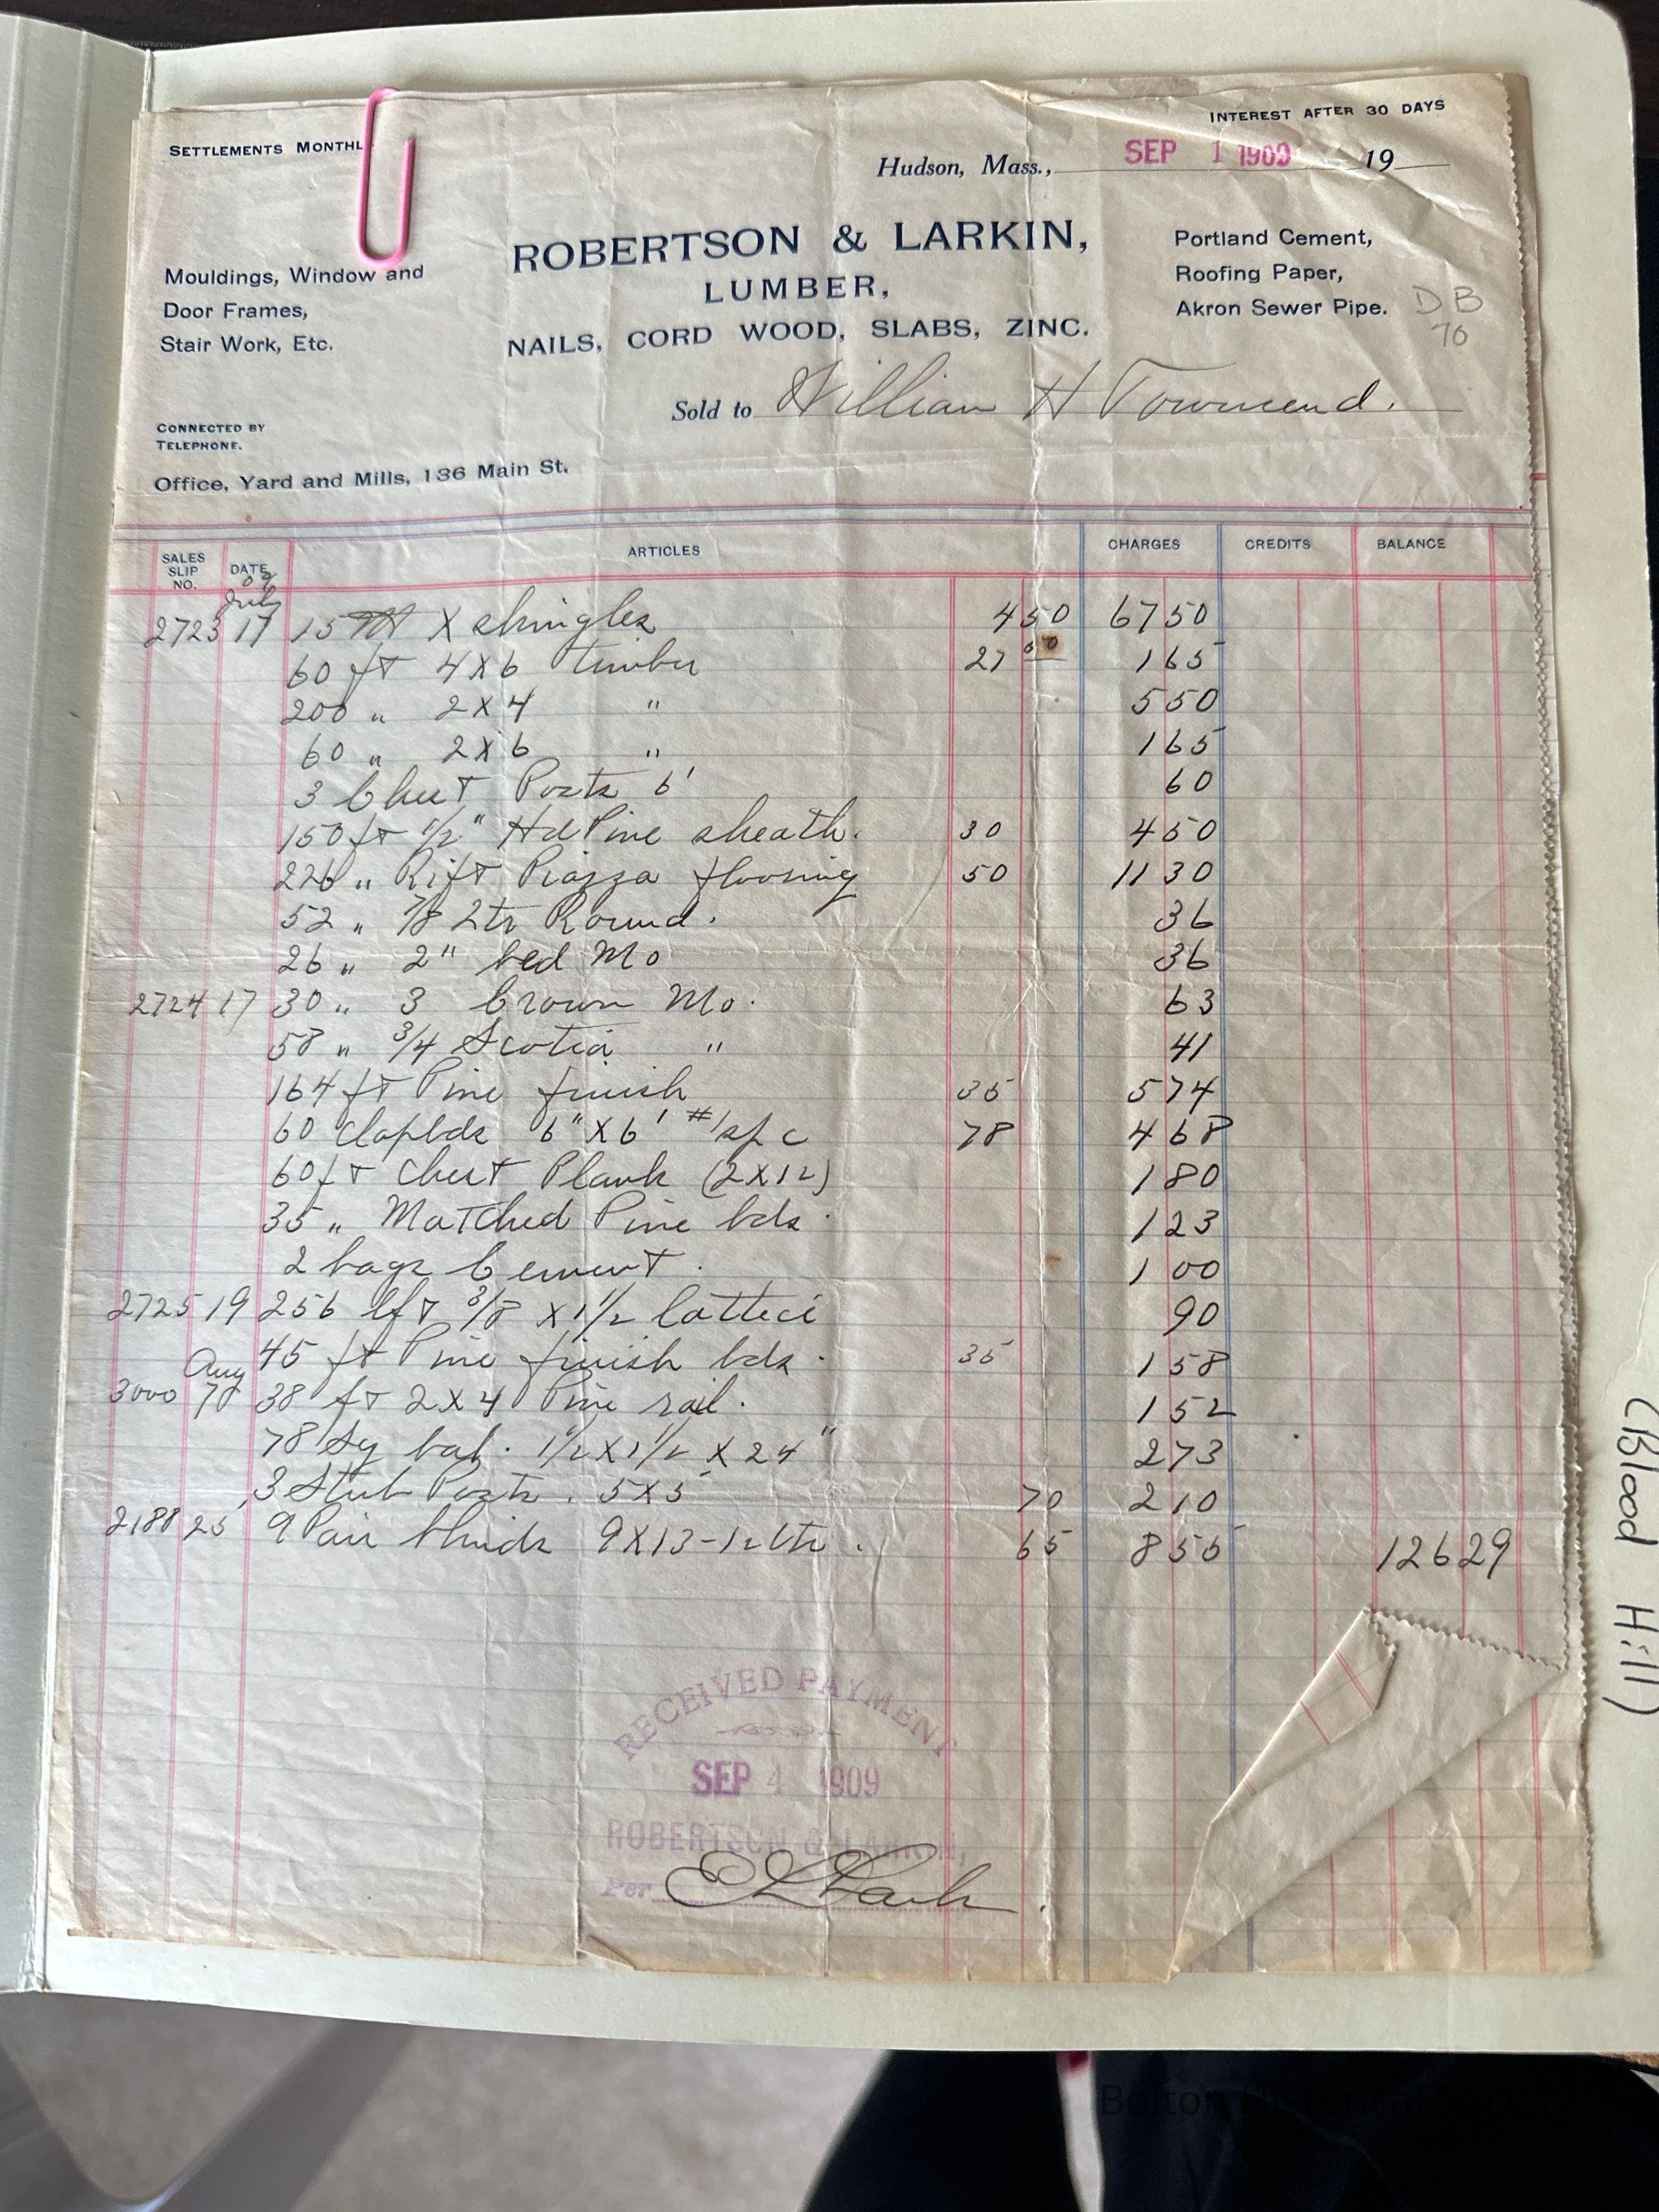 INTEREST AFTER 30 DAYS
SETTLEMENTS MONTHL
Hudson, Mass., SEP 1 1909 19
ROBERTSON & LARKIN,
LUMBER,
NAILS, CORD WOOD, SLABS, ZINC.
Mouldings, Window and
Door Frames,
Stair Work, Etc.
Portland Cement,
Roofing Paper,
Akron Sewer Pipe.
DB
70
Sold to William H Townsend.
CONNECTED BY
TELEPHONE.
Office, Yard and Mills, 136 Main St.
SALES SLIP NO. DATE ARTICLES CHARGES CREDITS BALANCE
09
July
2723 17 15 M X shingles 4 50 67 50
60 ft 4 X 6 timber 27 00 1 65
200 " 2 X 4 " 5 50
60 " 2 X 6 " 1 65
3 Chest Posts 6' 60
150 ft 1/2" Hd Pine sheath. 30 4 50
226 " Rift Piazza flooring 50 11 30
52 " 7/8 2tr Round. 36
26 " 2" bed Mo 36
2724 17 30 " 3 Crown Mo. 63
58 " 3/4 Scotia " 41
164 ft Pine finish 35 5 74
60 Clapbds 6" X 6' #1 sp c 78 4 68
60 ft Chest Plank (2 X 12) 1 80
35 " Matched Pine bds. 1 23
2 bags Cement. 1 00
2725 19 256 lft 3/8 X 1 1/2 lattice 90
45 ft Pine finish bds. 35 1 58
Aug
3000 70 38 ft 2 X 4 Pine rail. 1 52
78 Sq bal. 1 1/2 X 1 1/2 X 24" 2 73
3 Stub Posts. 5 X 5 70 2 10
2188 25 9 Pair blinds 9 X 13 - 12 lts. 65 8 55 126 29
RECEIVED PAYMENT
SEP 4 1909
ROBERTSON & LARKIN,
Per
(Blood Hill)
Bolton Historical Society